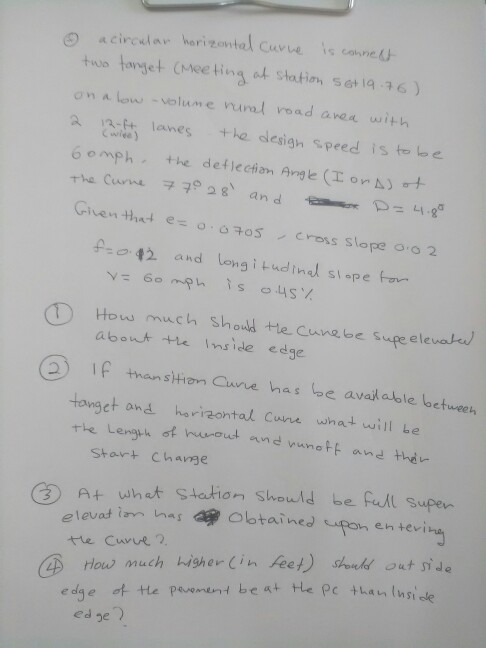 ② a circular horizontal curve is connect
two tanget (Meeting at station 56+19.76)
on a low-volume rural road area with
2 12-ft (wide) lanes the design speed is to be
60mph. the deflection Angle (I or Δ) of
The curve 77° 28' and D= 4.8°
Given that e= 0.0705, cross slope 0.02
f=0.12 and longitudinal slope for
V= 60 mph is 0.45%
① How much should the curve be supeelevated
about the inside edge
② If transition Curve has be available between
tanget and horizontal curve what will be
the Length of runout and runoff and their
Start change
③ At what Station should be full super
elevation has obtained upon entering
the curve?
④ How much higher (in feet) should out side
edge of the pavement be at the PC than Inside
edge?